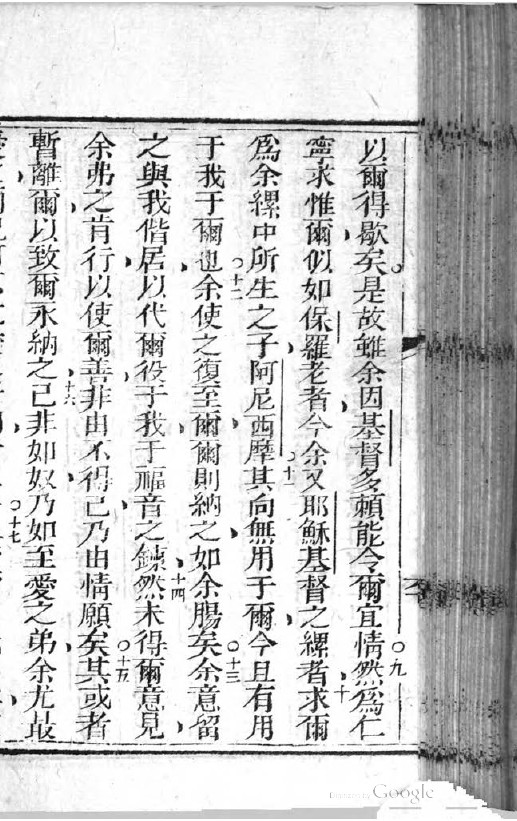 以爾得歇矣○是故雖余因基督多賴能令爾宜情○九然爲仁
寧求惟爾似如保羅老者今余又耶穌基督之縲者十求爾
爲余縲中所生之子阿尼西摩十一其向無用于爾今且有用
于我于爾也○十二余使之復至爾爾則納之如余腸矣○十三余意留
之與我偕居以代爾役于我于福音之鍊十四然未得爾意見
余弗之肯行以使爾善非由不得已乃由情願矣○十五其或者
暫離爾以致爾永納之十六已非如奴乃如至愛之弟余尤最
○十七
Digitized by Google